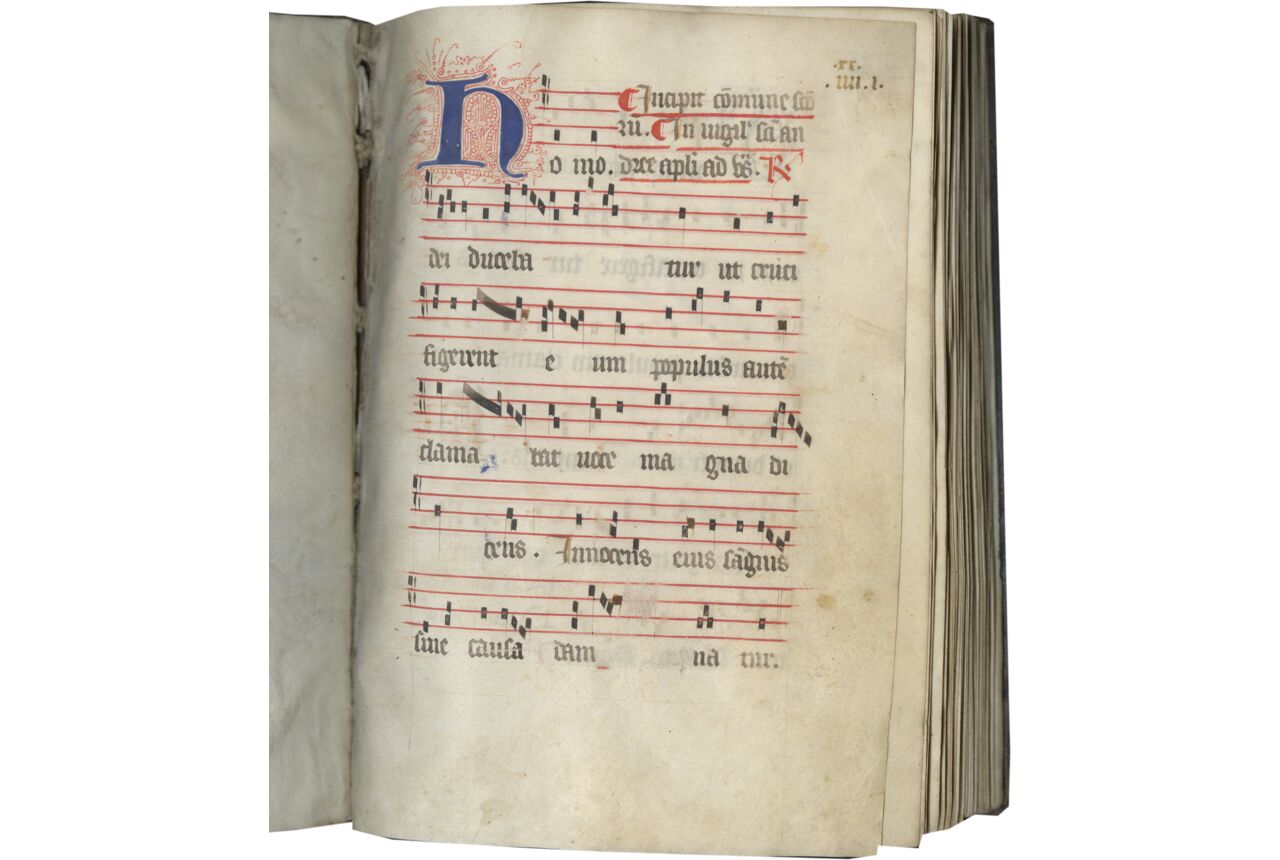 .xx.
.iiii.i.
¶ Incipit cōmune sc̄o
rū. ¶ In uigil' sc̄i an
H o mo. dree apl̄i ad vs̄. R.
dei duceba tur ut cruci
figerent e um populus autē
clama bat uoce ma gna di
cens. Innocens eius sāguis
sine causa dam na tur.